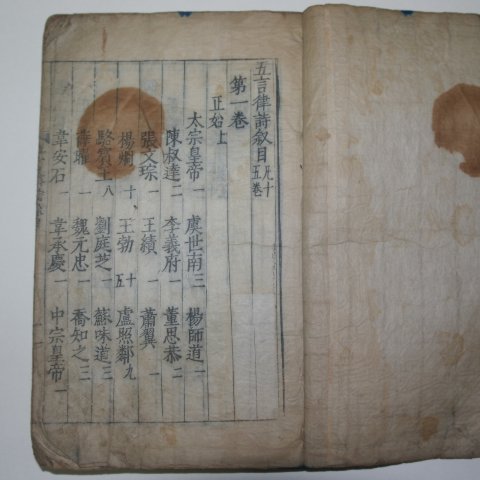 五言律詩叙目 凡十五卷
第一卷
正始上
太宗皇帝 一 虞世南 三 楊師道 一
陳叔達 二 李義府 一 董思恭 二
張文琮 一 王績 一 蕭翼 一
楊烱 十、 王勃 十五 盧照鄰 九
駱賓王 八 劉庭芝 一 蘇味道 三
薛曜 一 魏元忠 一 喬知之 三
韋安石 一 韋承慶 一 中宗皇帝 一